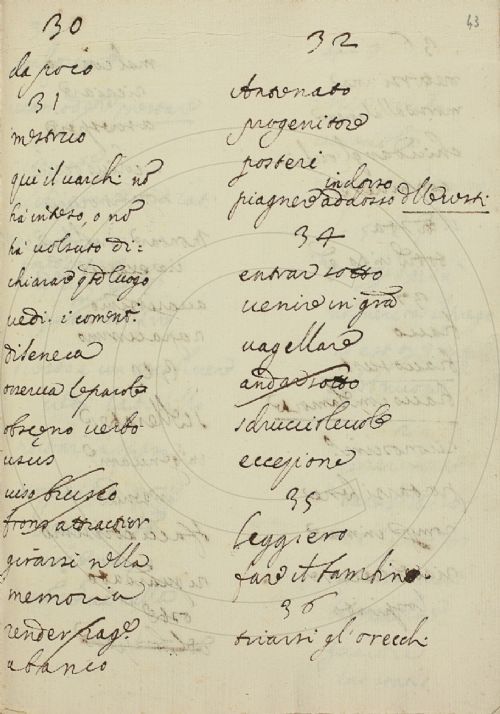 43
30
da poco
31
mestrico
qui il varchi nō
ha inteso, o nō
ha voluto di:
chiarare q̄sto luogo
vedi. i coment.
di seneca
osserva le parole
obsceno verbo
usus
viso brusco
frons attractior
girarsi nella
memoria
render rag.e
a banco
32
Antenato
progenitore
posteri
indosso
piagnere addosso delle vesti.
34
entrar sotto
venire in grā
vagellare
andar sotto
sdrucciolevole
eccezione
35
leggiero
fare il bambino.
36
tirarsi gl'orecchi